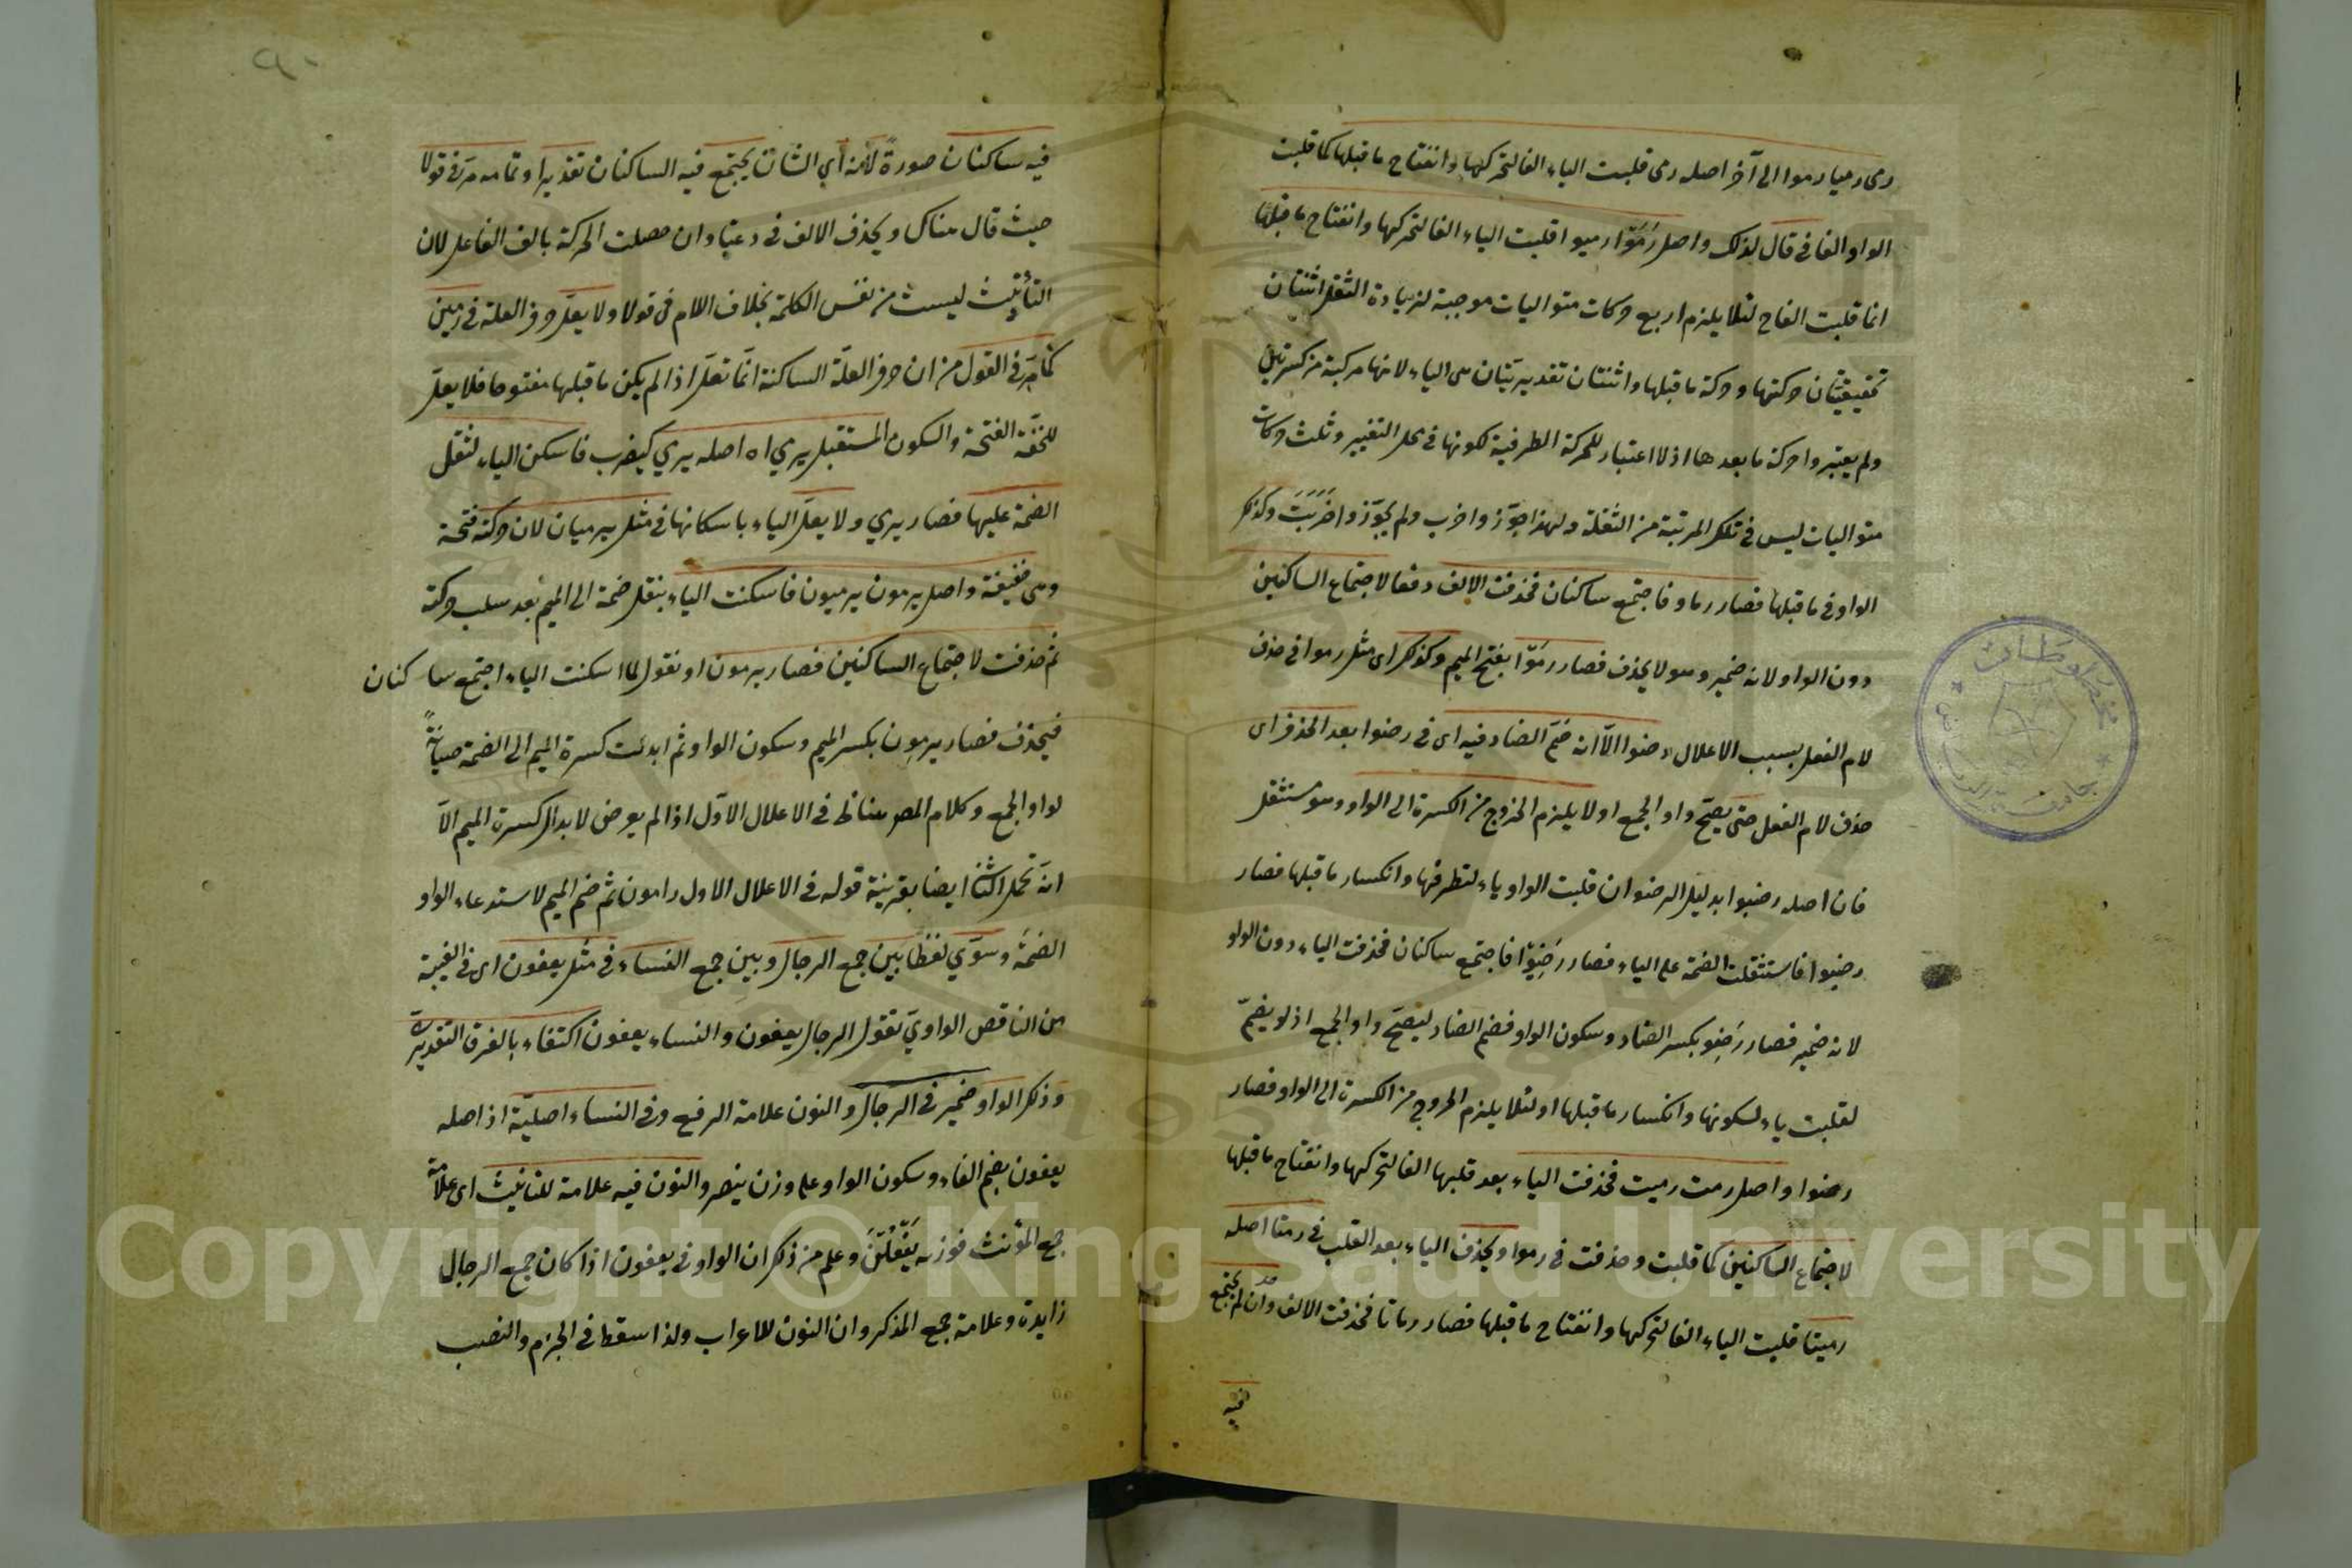 رمى رميا رموا الى آخر اصله رمى قلبت الياء الفا لتحركها وانفتاح ما قبلها كما قلبت
الواو الفا في قال لذلك واصل رَمَوْا رميوا قلبت الياء الفا لتحركها وانفتاح ما قبلها
انما قلبت الفاح لئلا يلزم اربع حركات متواليات موجبة لزيادة الثقل اثنتان
تحقيقيتان حركتها وحركة ما قبلها واثنتان تقديريتان هى الياء لانها مركبة من كسرتين
ولم يعتبروا حركة ما بعدها اذ لا اعتبار للحركة الطرفية لكونها في محل التغيير وثلث حركات
متواليات ليس في تلك المرتبة من الثقلة ولهذا جوّزوا ضرب ولم يجوّزوا ضَرَبَتَ وكذلك
الواو في ما قبلها فصار رماو فاجتمع ساكنان فحذفت الالف دفعا لاجتماع الساكنين
دون الواو لانه ضمير وهو لا يحذف فصار رمَوْا بفتح الميم وكذلك اى مثل رموا في حذف
لام الفعل بسبب الاعلال رضوا الّا انه ضمّ الضاد فيه اى في رضوا بعد الحذف اى
حذف لام الفعل حتى يصحّ واو الجمع او لا يلزم الخروج من الكسرة الى الواو وهو مستثقل
فان اصله رضيوا بدليل الرضوان قلبت الواو ياء لتطرفها وانكسار ما قبلها فصار
رضيوا فاستثقلت الضمة على الياء فصار رَضِيْوْا فاجتمع ساكنان فحذفت الياء دون الواو
لانه ضمير فصار رَضِوْ بكسر الضاد وسكون الواو فضم الضاد ليصحّ واو الجمع اذ لو يضمّ
لقلبت ياء لسكونها وانكسار ما قبلها او لئلا يلزم الخروج من الكسرة الى الواو فصار
رضوا واصل رمت رميت فحذفت الياء بعد قلبها الفا لتحركها وانفتاح ما قبلها
لاجتماع الساكنين كما قلبت وحذفت في رموا ويحذف الياء بعد القلب في رمتا اصله
رميتا قلبت الياء الفا لتحركها وانفتاح ما قبلها فصار رماتا فحذفت الالف وان لم يجتمع
فيه
فيه ساكنان صورةً لانه اي الشان يجتمع فيه الساكنان تقديرا وتمامه مرّ في قولا
حيث قال هناك ويحذف الالف في دعتا وان حصلت الحركة بالف الفاعل لان
التأنيث ليست من نفس الكلمة بخلاف اللام في قولا ولا يعلّ حرف العلة في رمين
كما مرّ في القول من ان حرف العلّة الساكنة انّما تعلّ اذا لم يكن ما قبلها مفتوحا فلا يعلّ
للخفّة الفتحة والسكون المستقبل يرمي اه اصله يرمي كيضرب فاسكن الياء لثقل
الضمة عليها فصار يرمي ولا يعلّ الياء باسكانها في مثل يرميان لان حركته فتحة
وهى خفيفة واصل يرمون يرميون فاسكنت الياء بنقل ضمة الى الميم بعد سلب حركته
ثم حذفت لاجتماع الساكنين فصار يرمون او نقول لما اسكنت الياء اجتمع ساكنان
فيحذف فصار يرمِون بكسر الميم وسكون الواو ثم ابدلت كسرة الميم الى الضمة صيانةً
لواو الجمع وكلام المص هنا في الاعلال الاوّل اذا لم يعرض لابدال كسرة الميم الّا
انه تحمل الثانى ايضا بقرينة قوله في الاعلال الاول رامون ثم ضم الميم لاستدعاء الواو
الضمّة وسوّي لفظا بين جمع الرجال وبين جمع النساء في مثل يعفون اى في الغيبة
من الناقص الواويّ تقول الرجال يعفون والنساء يعفون اكتفاء بالفرق التقديريّ
وذكر الواو ضمير في الرجال والنون علامة الرفع وفى النساء اصليّة اذ اصله
يعفون بضم الفاء وسكون الواو على وزن ينصر والنون فيه علامة للتانيث اى علامة
جمع المؤنث فوزنه يَفْعُلْنَ وعلم من ذكر ان الواو في يعفون اذا كان جمع الرجال
زايدة وعلامة جمع المذكر وان النون للاعراب ولذا سقط في الجزم والنصب
Copyright © King Saud University